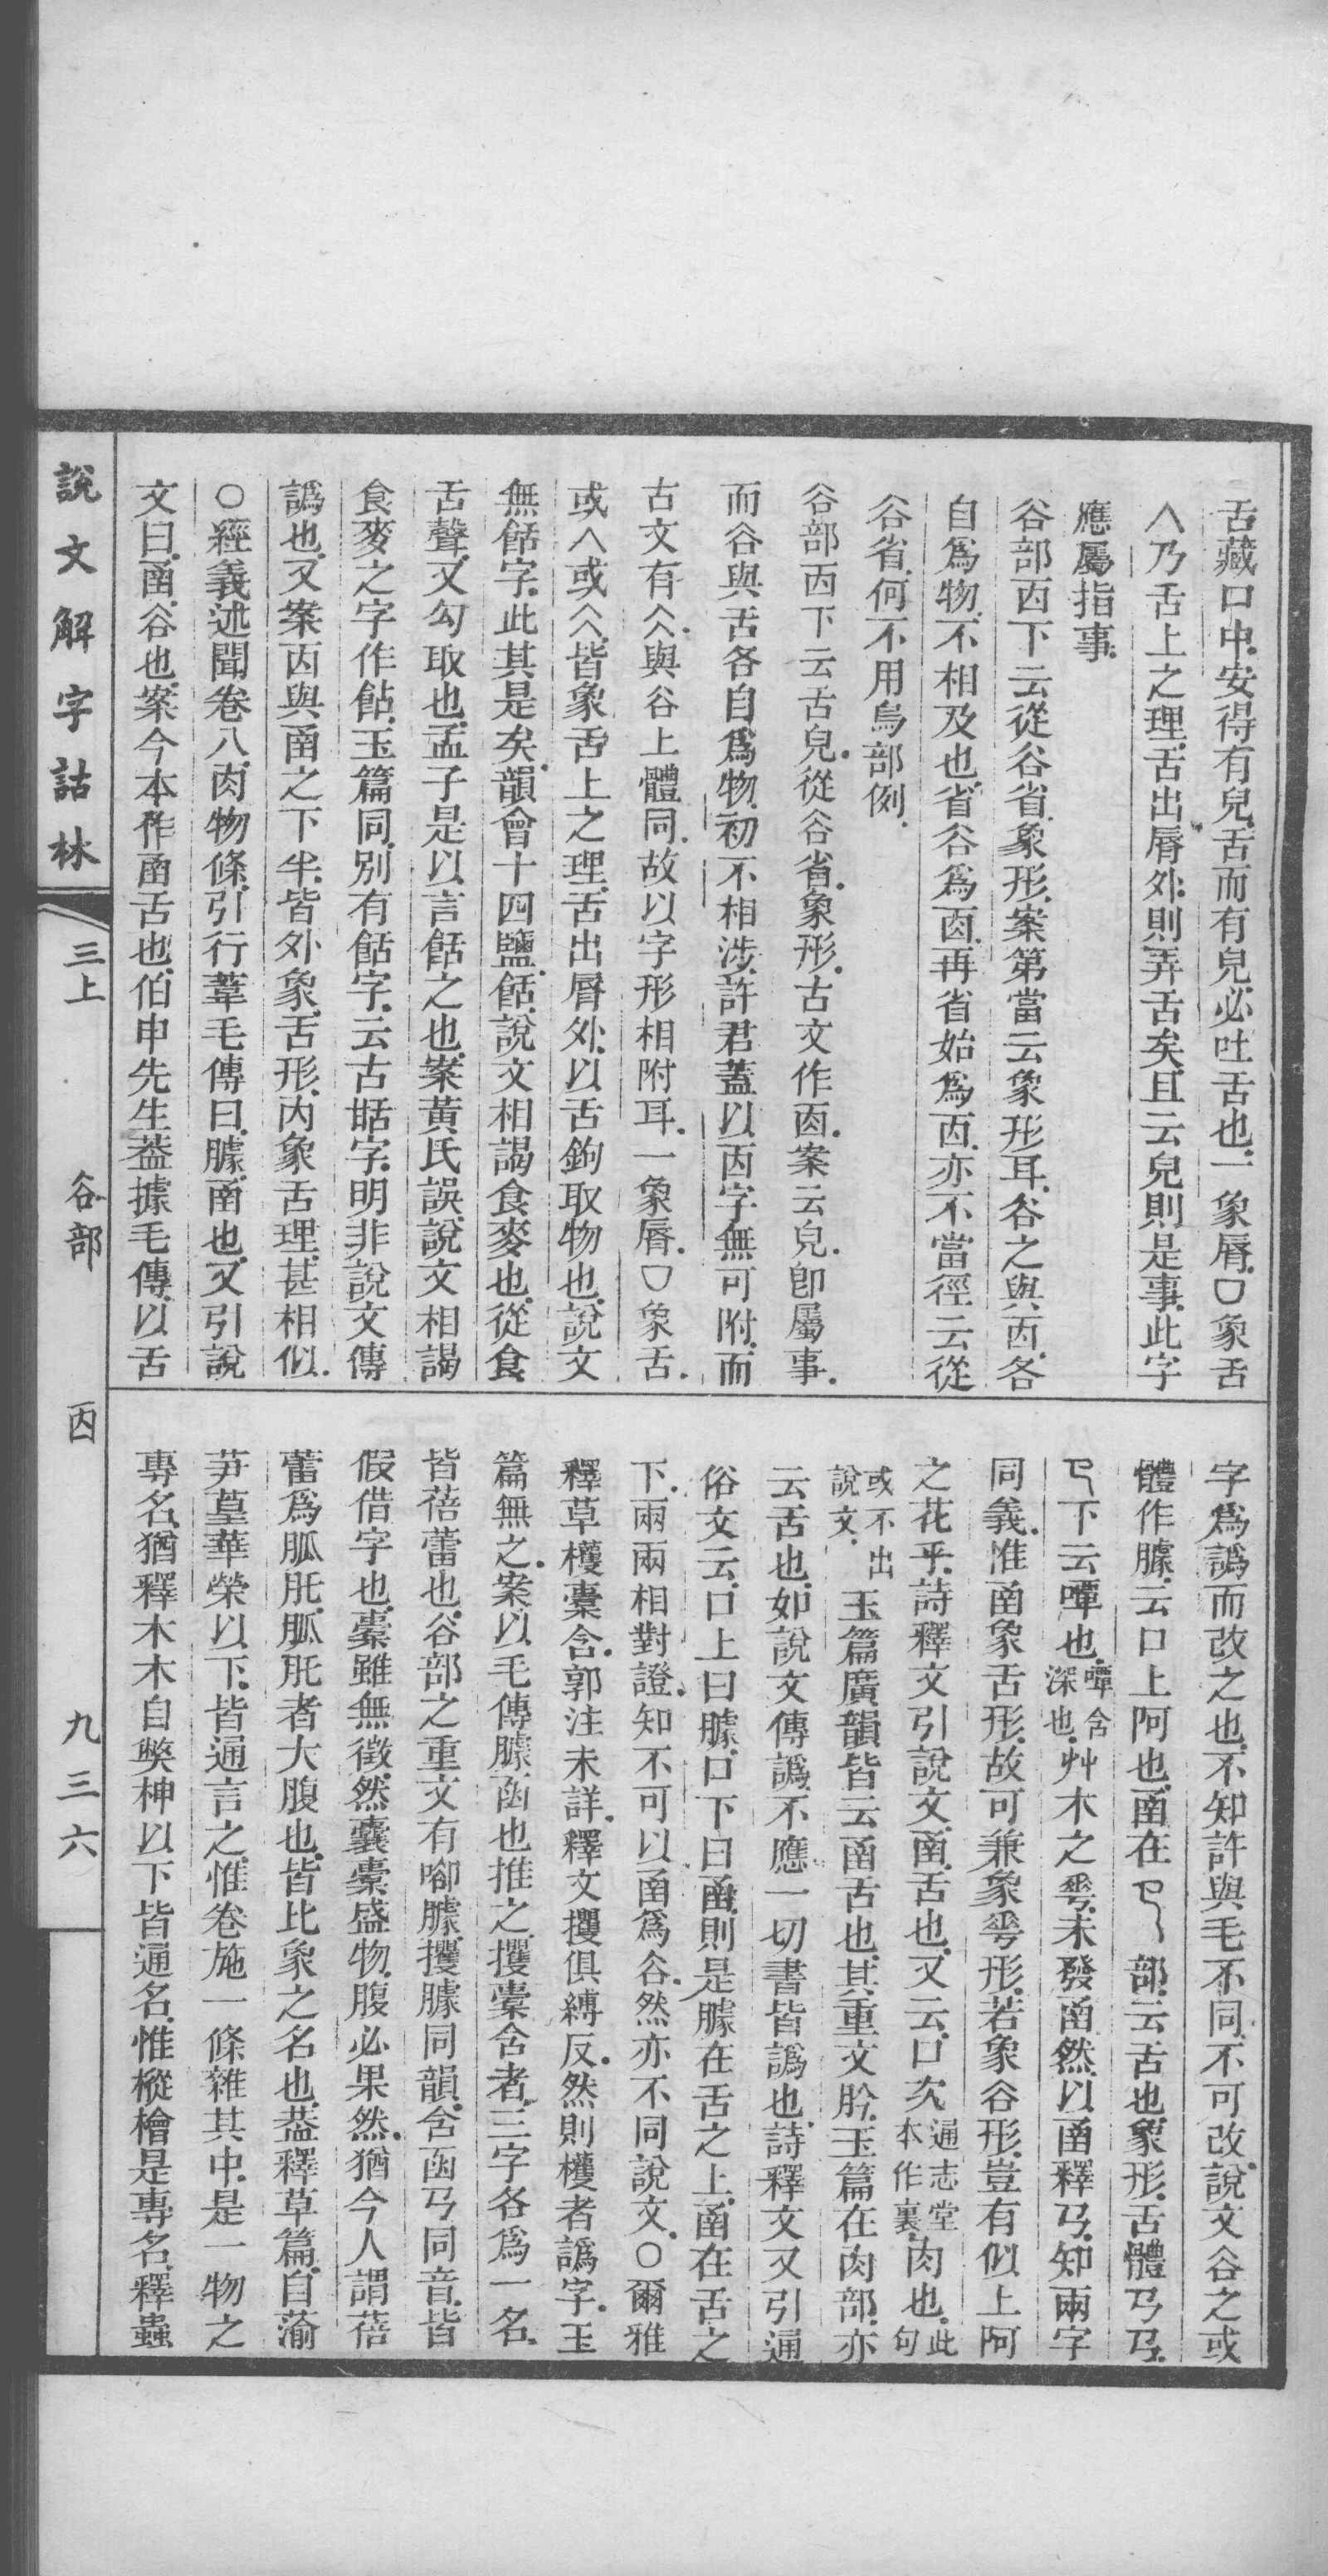 舌藏口中.安得有皃.舌而有皃.必吐舌也.一象脣.口象舌
人乃舌上之理.舌出脣外.則弄舌矣.且云皃則是事.此字
應屬指事.
谷部㐁下云從谷省.象形.案第當云象形耳.谷之與㐁.各
自爲物.不相及也.省谷爲𠧟.再省始爲㐁.亦不當徑云從
谷省.何不用烏部例.
谷部㐁下云舌皃.從谷省.象形.古文作𠧟.案云皃.卽屬事.
而谷與舌各自爲物.初不相涉.許君蓋以㐁字無可附.而
古文有仌.與谷上體同.故以字形相附耳.一象脣.口象舌.
或人或仌.皆象舌上之理.舌出脣外.以舌鉤取物也.說文
無餂字.此其是矣.韻會十四鹽.餂.說文相謁食麥也.從食
舌聲.又勾取也.孟子是以言餂之也.案黃氏誤.說文相謁
食麥之字作䬯.玉篇同.別有餂字.云古甛字.明非說文傳
譌也.又案㐁與圅之下半.皆外象舌形.內象舌理.甚相似.
○經義述聞卷八.肉物條.引行葦毛傳曰.臄.圅也.又引說
文曰.圅.谷也.案今本作函舌也.伯申先生葢據毛傳.以舌
字爲譌而改之也.不知許與毛不同.不可改.說文谷之或
體作臄.云口上阿也.圅在𢎘部.云舌也.象形.舌體𢎘𢎘.
𢎘下云嘾也.嘾含深也.艸木之𠌶.未發圅然.以圅釋𢎘.知兩字
同義.惟圅象舌形.故可兼象𠌶形.若象谷形.豈有似上阿
之花乎.詩釋文引說文.圅.舌也.又云.口次通志堂本作裏.肉也.此句
或不出說文.玉篇廣韻皆云圅舌也.其重文肣.玉篇在肉部.亦
云舌也.如說文傳譌.不應一切書皆譌也.詩釋文又引通
俗文云.口上曰臄.口下曰圅.則是臄在舌之上.圅在舌之
下.兩兩相對證.知不可以圅爲谷.然亦不同說文.○爾雅
釋草欔橐含.郭注未詳.釋文攫俱縛反.然則欔者譌字.玉
篇無之.案以毛傳臄函也推之.攫橐含者.三字各爲一名.
皆蓓蕾也.谷部之重文有㖸臄.攫臄同韻.含函𢎘同音.皆
假借字也.橐雖無徵.然囊橐盛物.腹必果然.猶今人謂蓓
蕾爲胍肫.胍肫者大腹也.皆比象之名也.葢釋草篇.自蕍
芛葟華榮以下.皆通言之.惟卷施一條雜其中.是一物之
專名.猶釋木木自獘柛以下皆通名.惟樅檜是專名.釋蟲
說文解字詁林
三上
谷部
㐁
九三六